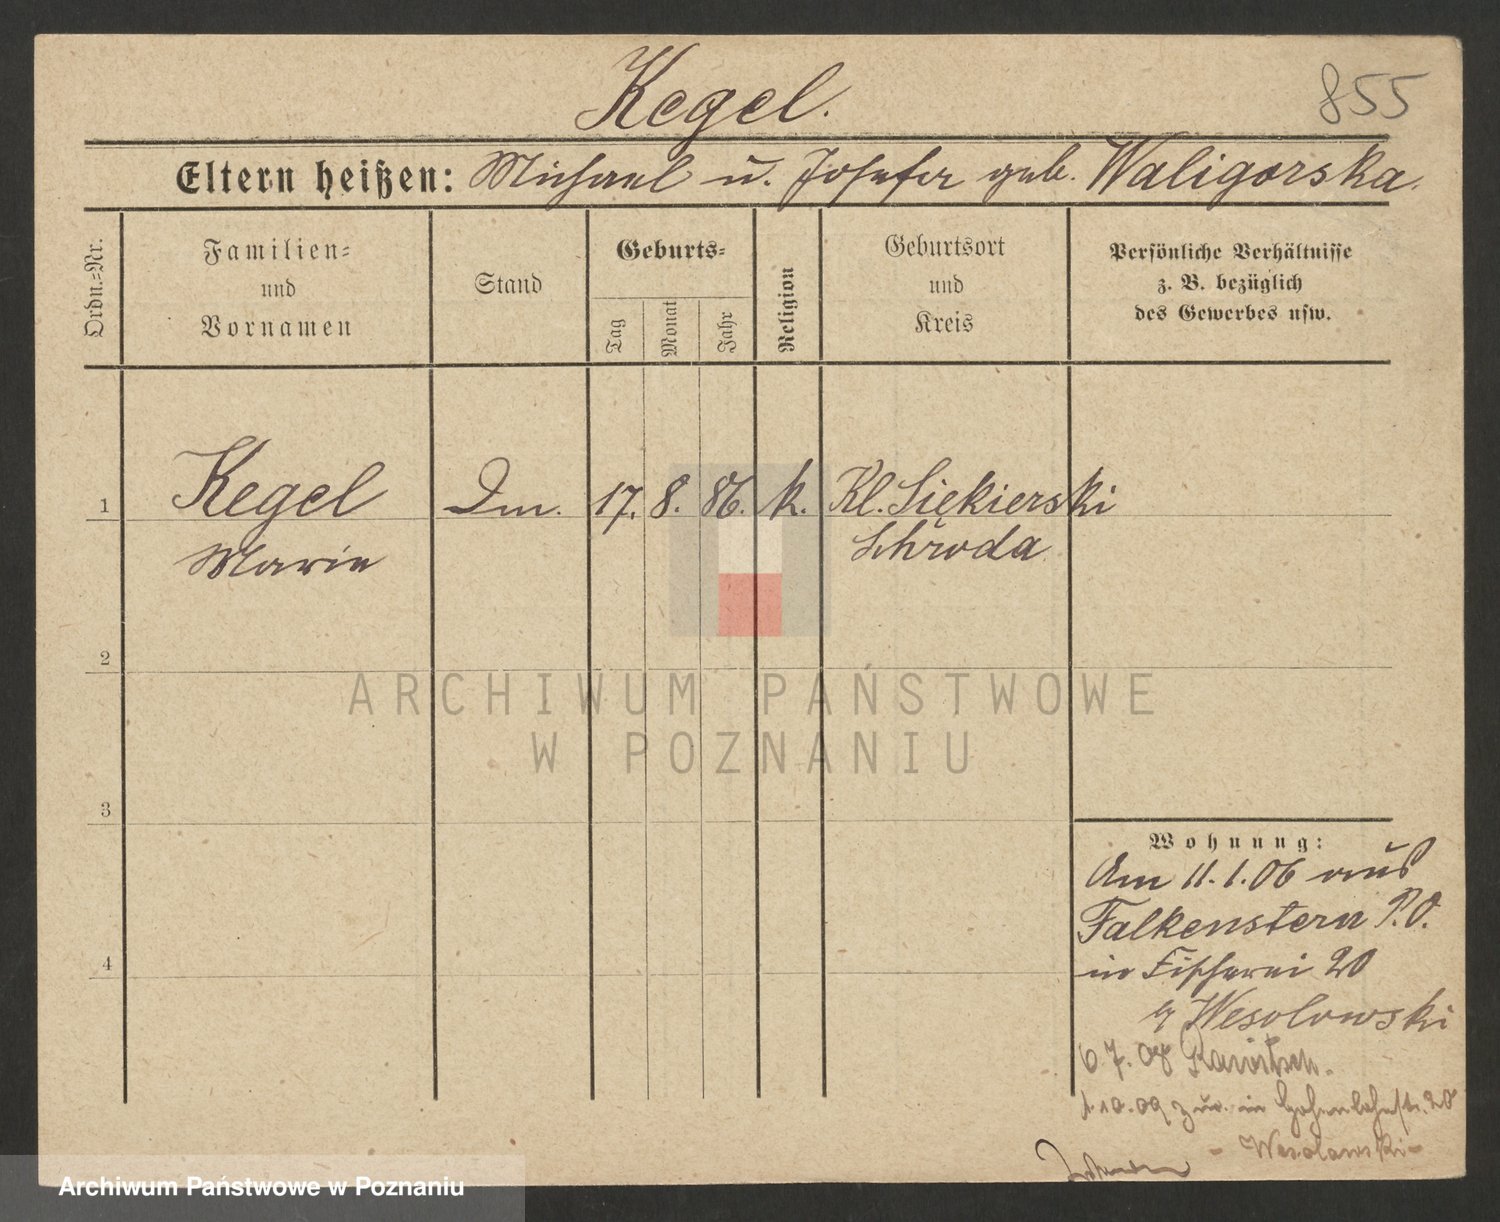 Kegel.
855
Eltern heißen: Michael u. Josefa geb. Waligorska.
Ordn.-Nr.
Familien-
und
Vornamen
Stand
Geburts-
Tag
Monat
Jahr
Religion
Geburtsort
und
Kreis
Persönliche Verhältnisse
z. B. bezüglich
des Gewerbes usw.
1 Kegel Dm. 17. 8. 86. k. Kl. Siekierski
Marie Schroda
2
ARCHIWUM PAŃSTWOWE
W POZNANIU
3
Wohnung:
Am 11.1.06 aus
Falkenstern P.O.
4
in Fischerei 20
Wesolowski
6.7.08 Rawitsch.
1.10.09 zur. in Hohenlohestr. 20
- Wesolowski -
Archiwum Państwowe w Poznaniu